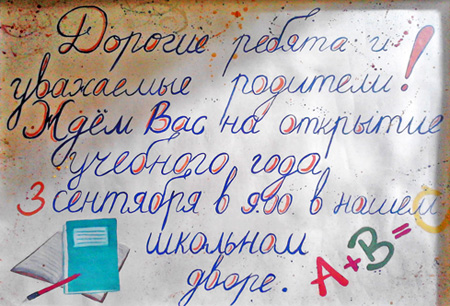 Дорогие ребята и
уважаемые родители!
Ждём Вас на открытие
учебного года
3 сентября в 9.00 в нашем
школьном
дворе.
А+В=